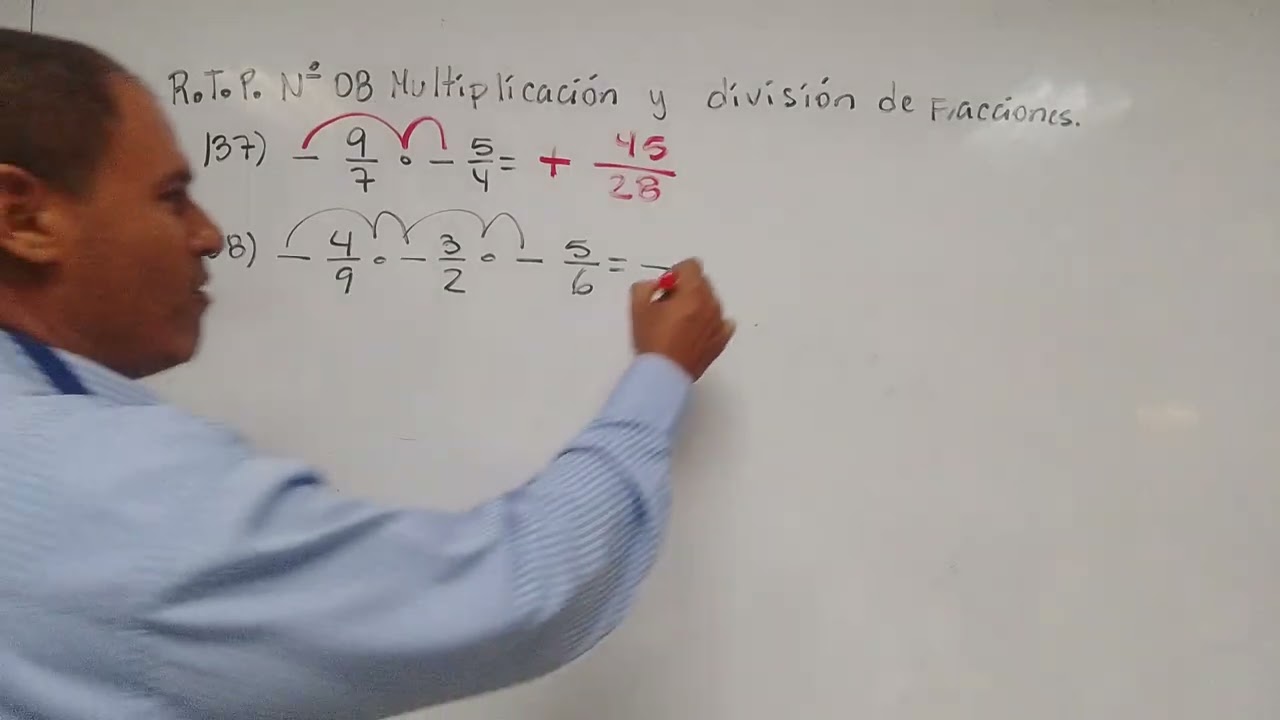 R.T.P. Nº 08 Multiplicación y división de Fracciones.
137) - 9/7 • - 5/4 = + 45/28
8) - 4/9 • - 3/2 • - 5/6 = -